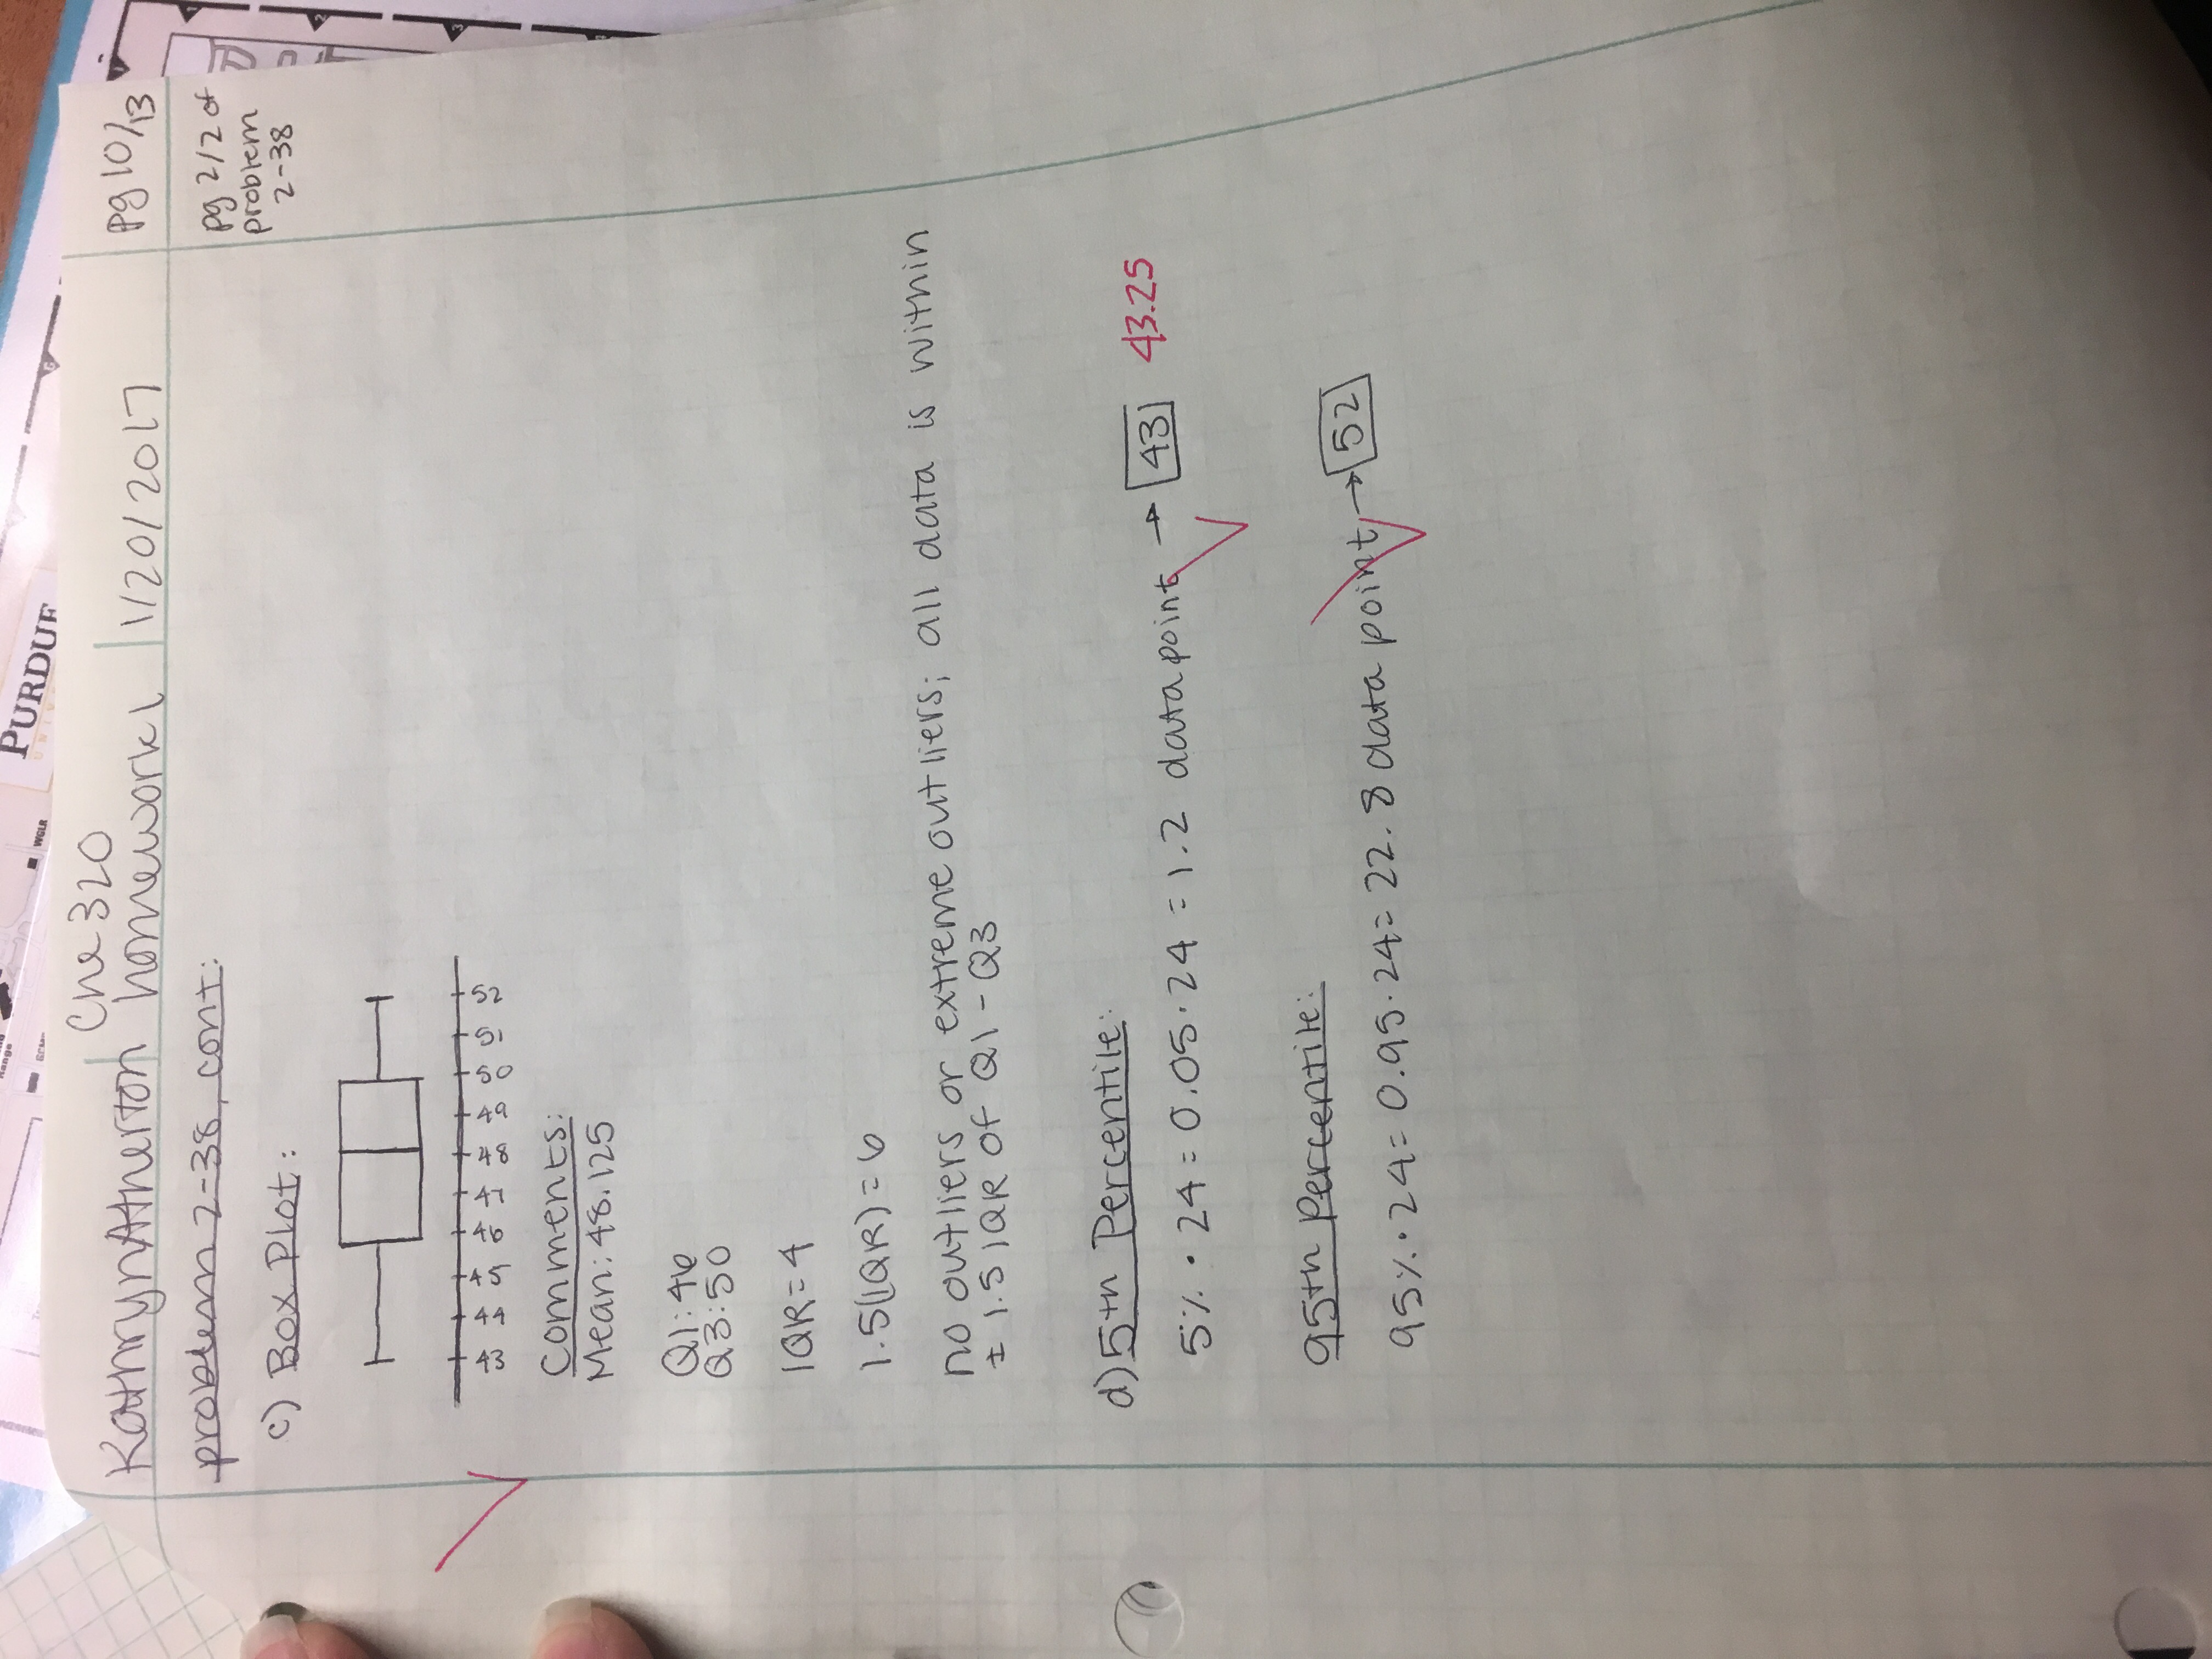 PURDUE
WGLR
Kathryn Atherton
Che 320
homework 1
1/20/2017
pg 10/13
problem 2-38, cont:
pg 2/2 of
problem
2-38
c) Box Plot:
43 44 45 46 47 48 49 50 51 52
Comments:
Mean: 48.125
Q1: 46
Q3: 50
IQR = 4
1.5(IQR) = 6
no outliers or extreme outliers; all data is within
± 1.5 IQR of Q1 - Q3
d) 5th Percentile:
5% · 24 = 0.05 · 24 = 1.2 data point → 43 43.25
95th Percentile:
95% · 24 = 0.95 · 24 = 22.8 data point → 52